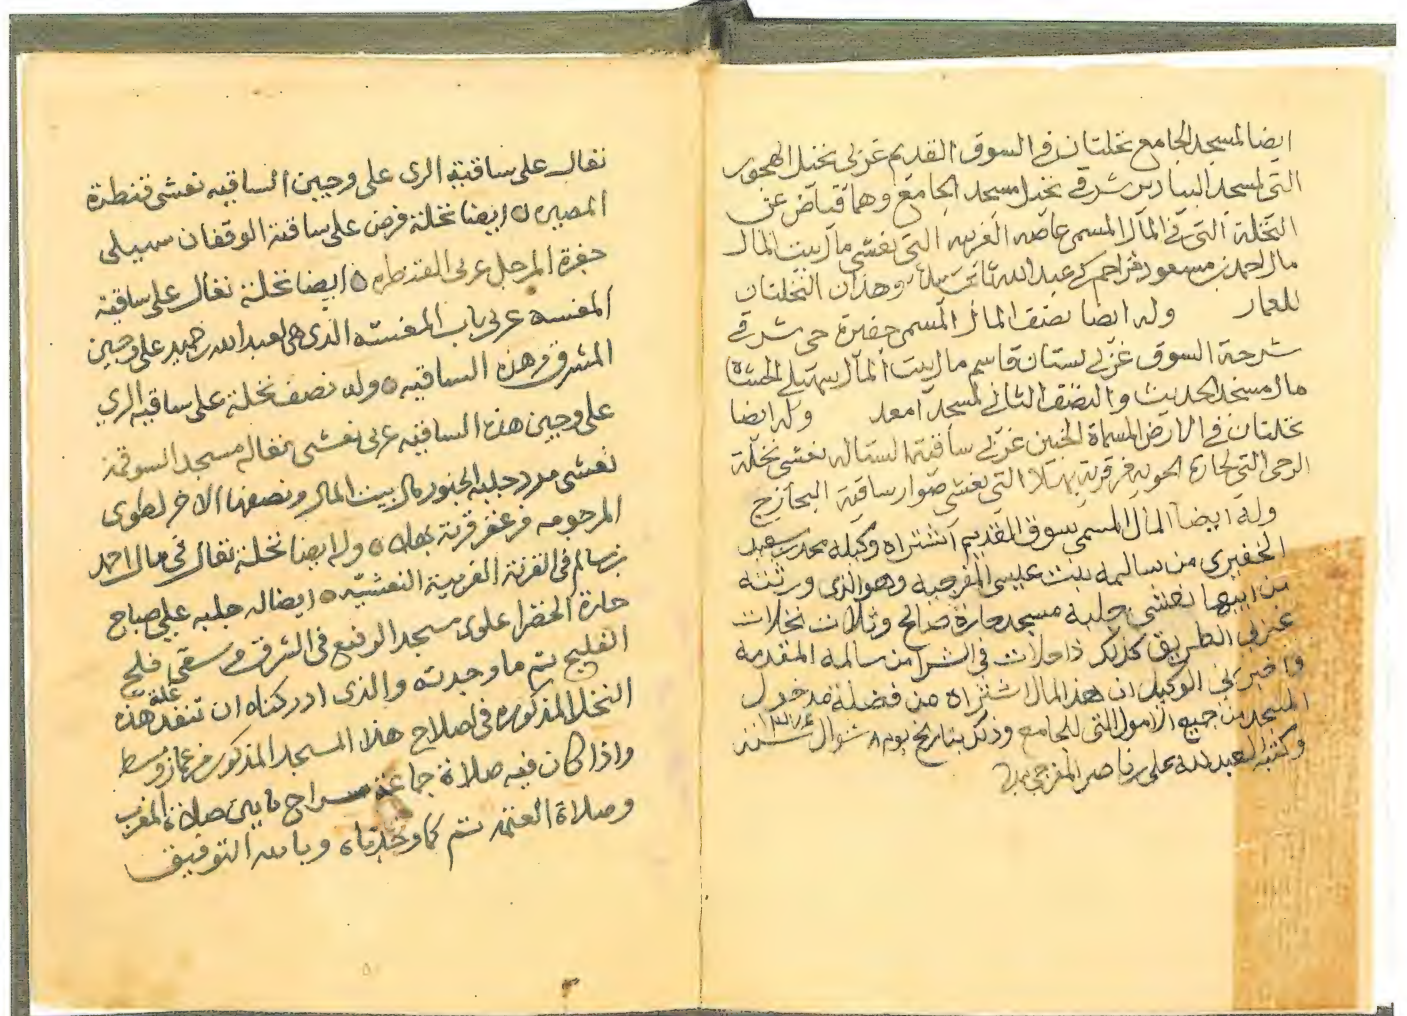 ايضا لمسجد الجامع نخلتان في السوق القديم غربي نخيل الهجور
التي لمسجد البيادير شرقي نخيل مسجد الجامع وهما قياض عن
النخلة التي في المال المسمى عاضد الغربيه التي نعشي مال بيت المال
مال احمد بن مسعود عبد الله وهذان النخلتان
للعمار وله ايضا نصف المال المسمى حفيرة حي شرقي
شرجة السوق غربي بستان قاسم مال بيت المال سهيلي
مال مسجد الحديث والنصف الثاني لمسجد وله ايضا
نخلتان في الارض المسماة الخبين غربي ساقية نعشي نخلة
الرحى التي لحارة من قرية بهلا التي نعشي صوار ساقية
وله ايضا المال المسمى سوق القديم اشتراه وكيله محمد بن سعيد
الخفيري من سالمه بنت عيسى المفرجيه وهو الذي ورثته
من ابيها نعشي جلبة مسجد حارة صالح وثلاث نخلات
غربي الطريق كذلك داخلات في الشرا من سالمه المتقدمه
واخبرني الوكيل ان هذا المال اشتراه من فضلة مدخول
المسجد من جميع الامول التي للجامع وذلك بتاريخ يوم ٨ شوال سنة
وكتبه العبد لله علي بن ناصر المفرجي بيده
نغال على ساقية الري على وجين الساقيه نعشي قنطرة
ايضا نخلة فرض على ساقية الوقفان سهيلي
حفرة المرجل غربي القنطره ايضا نخلة نغال على ساقية
المغسة غربي باب المغسة الذي هي لعبد الله بن حميد على وجين
المشرقي من هذه الساقيه وله نصف نخلة على ساقية الري
على وجين هذه الساقيه غربي نعشي نغاله مسجد السوقمة
نعشي جلبة الجنور مال بيت المال ونصفها الاخر لطوى
المرحومه من قرية بهلا وله ايضا نخلة نغال في مال احمد
بن سالم في القرنة الغربية النعشية ايضا له جلبه علي صباح
حارة الخضرا علوي مسجد الرفيع في الشرقي من سقي فلج
الفليج تم ما وجدته والذي ادركناه ان تنفد غلة هذه
النخل المذكوره في اصلاح هذا المسجد المذكور من عماز وبسط
واذا كان فيه صلاة جماعة سراج ما بين صلاة المغرب
وصلاة العتمه تم كما وجدناه وبالله التوفيق